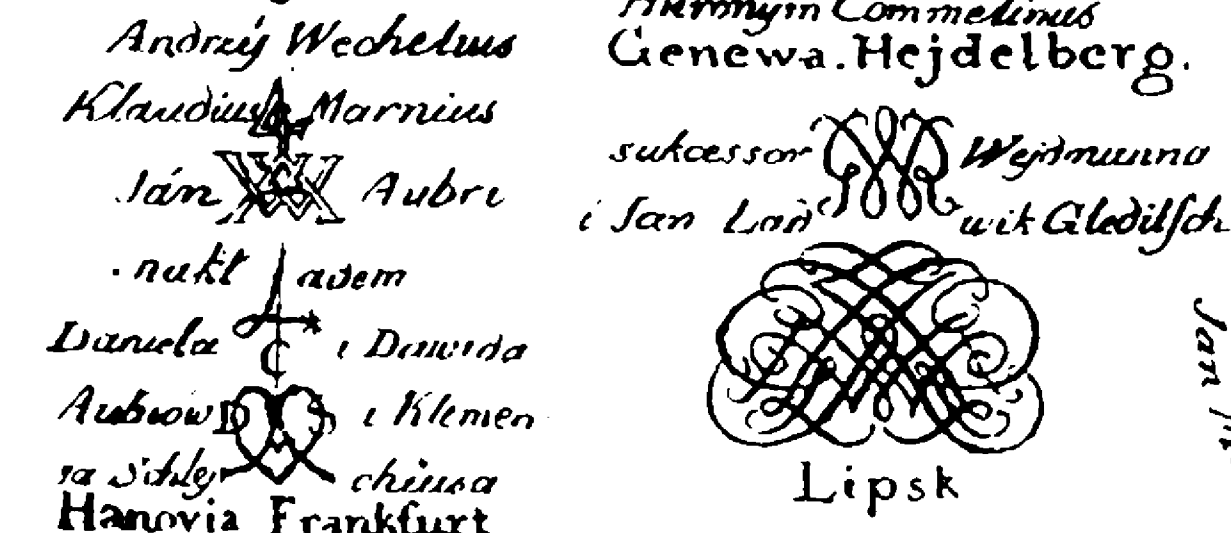 Andrzij Wechelius
Klaudius Marnius
Ján Aubri
nakł adem
Daniela i Dawida
Aubrow i Klemen
sa Schley chiusa
Hanovia Frankfurt
Hieronym Commelinus
Genewa. Hejdelberg.
sukcessor Wejdmanna
i Jan Lad wik Gleditsch
Lipsk
Jan